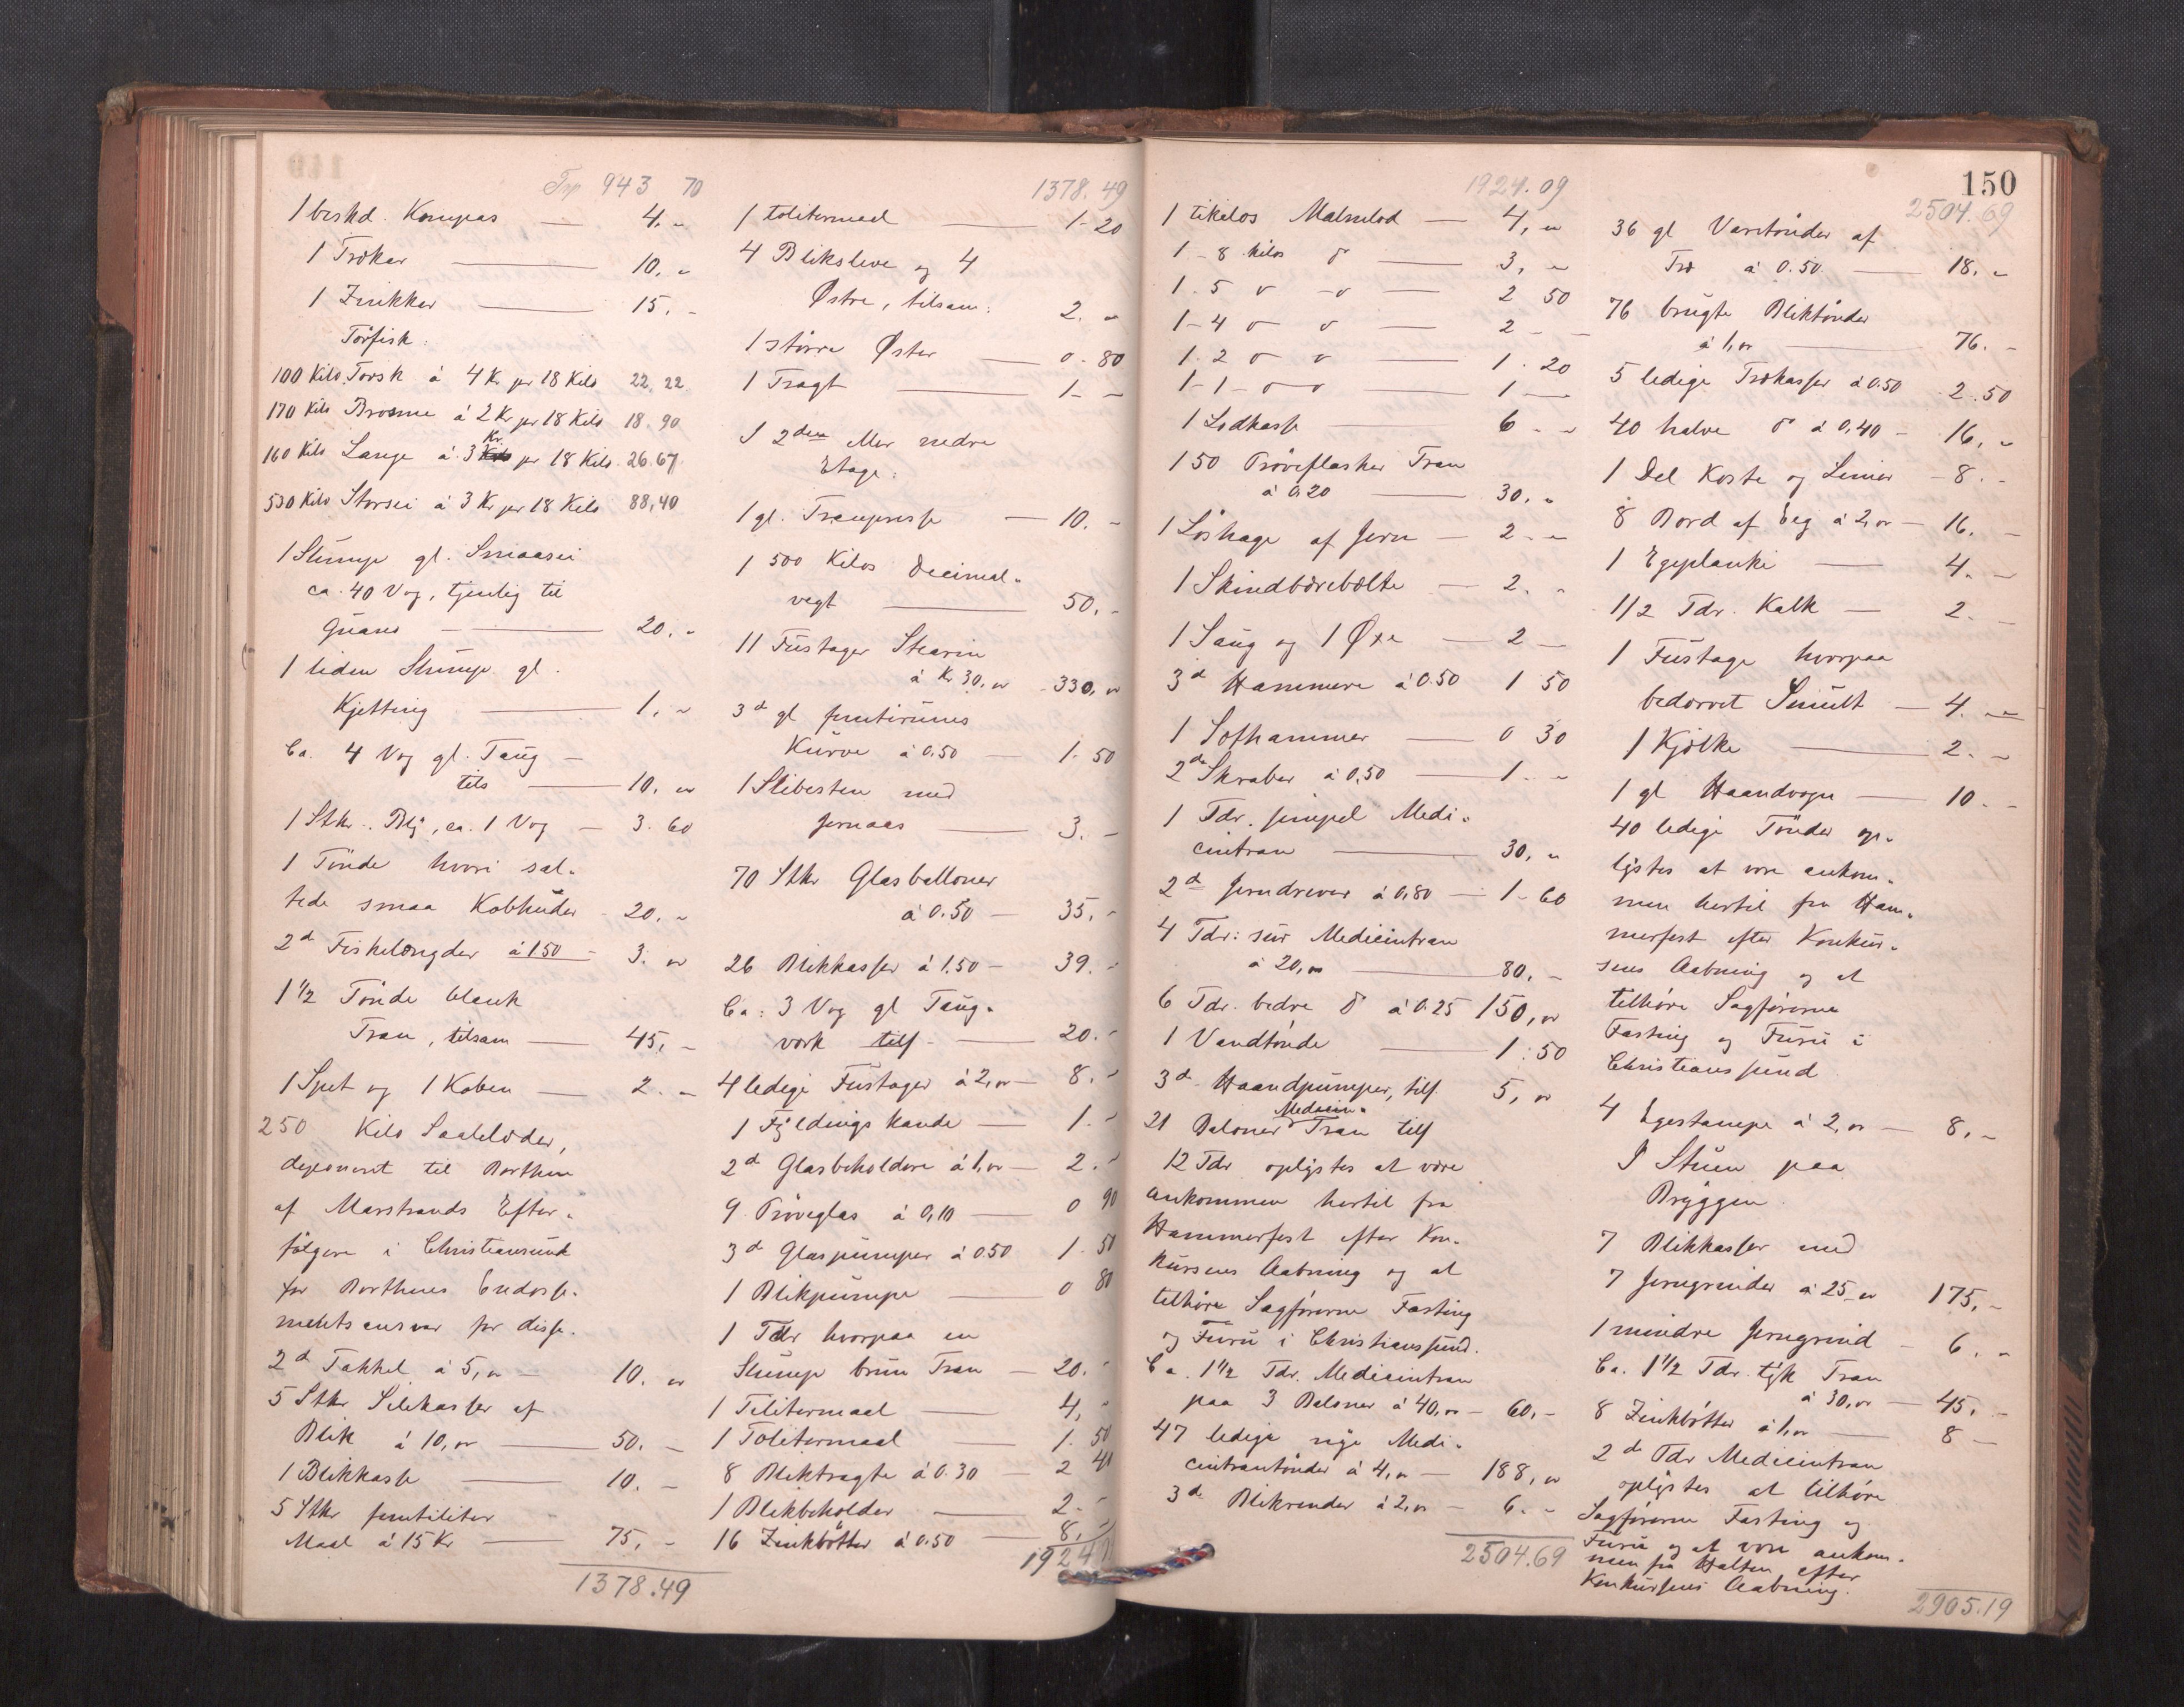 Trp. 943 70
1 beskd. Kompas — 4. "
1 Trækar — 10. "
1 Zinkkar — 15. "
Törfisk:
100 Kilo Torsk á 4 Kr pr 18 Kilo 22.22
170 Kilo Brosme á 2 Kr pr 18 Kilo 18.90
160 Kilo Lange á 3 Kr. pr 18 Kilo 26.67
530 Kilo Storsei á 3 Kr pr 18 Kilo 88,40
1 Stump gl. Smaasei
ca. 40 Vog, tjenlig til
Guano — 20. "
1 liden Stump gl.
Kjetting — 1. "
Ca. 4 Vog gl. Taug —
tils — 10. "
1 Stkr. Blÿ, ca. 1 Vog — 3.60
1 Tönde hvori sal-
tede smaa Kobhuder - 20. "
2d Fiskelængder á 1.50 - 3. "
1 1/2 Tönde blank
Tran, tilsam — 45. "
1 Spet og 1 Koben — 2. "
250 Kilo Saalelæder,
deponeret til Borthen
af Marstrands Efter-
fölgere i Christianssund
for Borthens Endosse-
mentsansvar for disse.
2d Takkel á 5," — 10. "
5 Stkr Silekasser af
Blik á 10," — 50. "
1 Blikkasse — 10. "
5 Stkr femtiliter
Maal á 15 Kr — 75. "
1378.49
1378.49
1 tolitermaal — 1-20
4 Bliksleve og 4
Østre, tilsam: 2. "
1 större Øster — 0-80
1 Tragt — 1- "
I 2den Mer nedre
Etage:
1 gl. Tranpresse — 10. "
1 500 Kilos Decimal-
vegt — 50. "
11 Fustager Stearin
á Kr 30," - 330, "
3d gl femtirums
Kurve á 0.50 — 1.50
1 Slibesten med
Jernaas — 3. "
70 Stkr Glasballoner
á 0.50 — 35. "
26 Blikkasser á 1.50 — 39. "
Ca: 3 Vog gl Taug-
værk tils — 20. "
4 ledige Fustager á 2," — 8. "
1 Fÿldingskande — 1. "
2d Glasbeholdere á 1," — 2. "
9 Pröveglas á 0,10 — 0 90
3d Glaspumper á 0.50 1.50
1 Blikpumpe — 0 80
1 Tdr hvorpaa en
Stump brun Tran — 20. "
1 Tilitermaal — 4, "
1 Tolitermaal — 1.50
8 Bliktragte á 0.30 — 2 40
1 Blikbeholder — 2. "
16 Zinkbötter á 0.50 — 8. "
1924
1924.09
1 tikilos Malmlod — 4, "
1 - 8 kilos d — 3, "
1 - 5 d - d — 2 50
1 - 4 d d — 2 -
1 - 2 d d — 1.20
1 - 1 - d d — 1 —
1 Lodkasse — 6 - "
150 Pröveflasker Tran
á 0.20 — 30. "
1 Löshage af Jern — 2 - "
1 Skindbærebælte — 2. "
1 Saug og 1 Øxe — 2 —
3d Hammere á 0.50 1 50
1 Lofhammer — 0 30
2de Skraber á 0,50 — 1 - "
1 Tdr. simpel Medi-
cintran — 30, "
2d Jerndrever á 0,80 — 1-60
4 Tdr: sur Medicintran
á 20," — 80. "
6 Tdr. bedre d á 0.25 150, "
1 Vandtönde — 1.50
3d Haandpumper, tils. 5, "
21 Baloner Medicin-
Tran tils
12 Tdr oplÿstes at være
ankommen hertil fra
Hammerfest efter Kon-
kursens Aabning og at
tilhöre Sagförerne Fasting
og Furu i Christianssund.
Ca. 1 1/2 Tdr. Medicintran
paa 3 Baloner á 40," — 60, -
47 ledige nÿe Medi-
cintrantönder á 4," — 188, "
3de Blikrender á 2," — 6. -
2504.69
150
2504.69
36 gl Varetönder af
Træ á 0.50. — 18. "
76 brugte Bliktönder
á 1," — 76. -
5 ledige Trækasser á 0.50 2.50
40 halve d á 0,40 - 16, "
1 Del Koste og Limer - 8. -
8 Bord af Eeg á 2," — 16. -
1 Egeplanke — 4. -
1/2 Tdr. Kalk — 2. -
1 Fustage hvorpaa
bedærvet Smult — 4. "
1 Kjölke — 2. -
1 gl Haandvogn — 10. -
40 ledige Tönder op-
lÿstes at være ankom-
men hertil fra Ham-
merfest efter Konkur-
sens Aabning og at
tilhöre Sagförerne
Fasting og Furu i
Christianssund
4 Egestampe á 2," — 8. -
I Stuen paa
Brÿggen.
7 Blikkasser med
7 Jerngrinder á 25," 175, -
1 mindre Jerngrind - 6. "
Ca. 1 1/2 Tdr. tÿk Tran
á 30," — 45. -
8 Zinkbötter á 1," — 8 —
2de Tdr Medicintran
oplÿstes at tilhöre
Sagförerne Fasting og
Furu og at være ankom-
men fra Halten efter
Konkursens Aabning.
2905.19